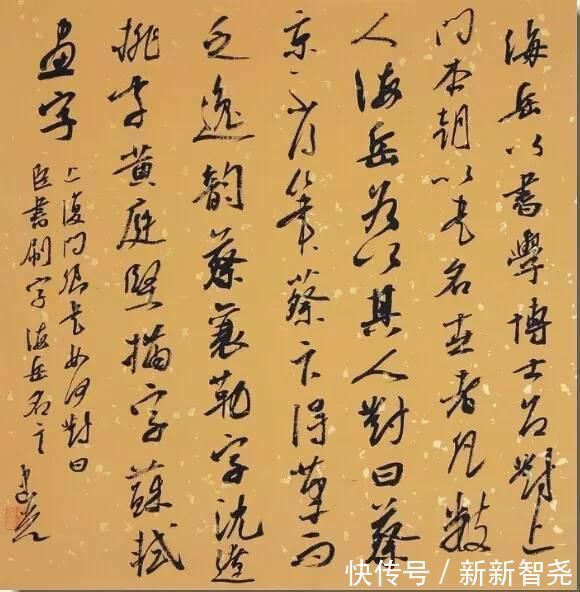 海岳以書學博士召對上
问本朝以書名世者凡数
人海岳各以其人對曰蔡
京不得筆蔡卞得筆而
乏逸韵蔡襄勒字沈遼
排字黄庭堅描字蘇軾
畫字
上復问卿書如何對曰
臣書刷字海岳名言
快传号/新新智尧